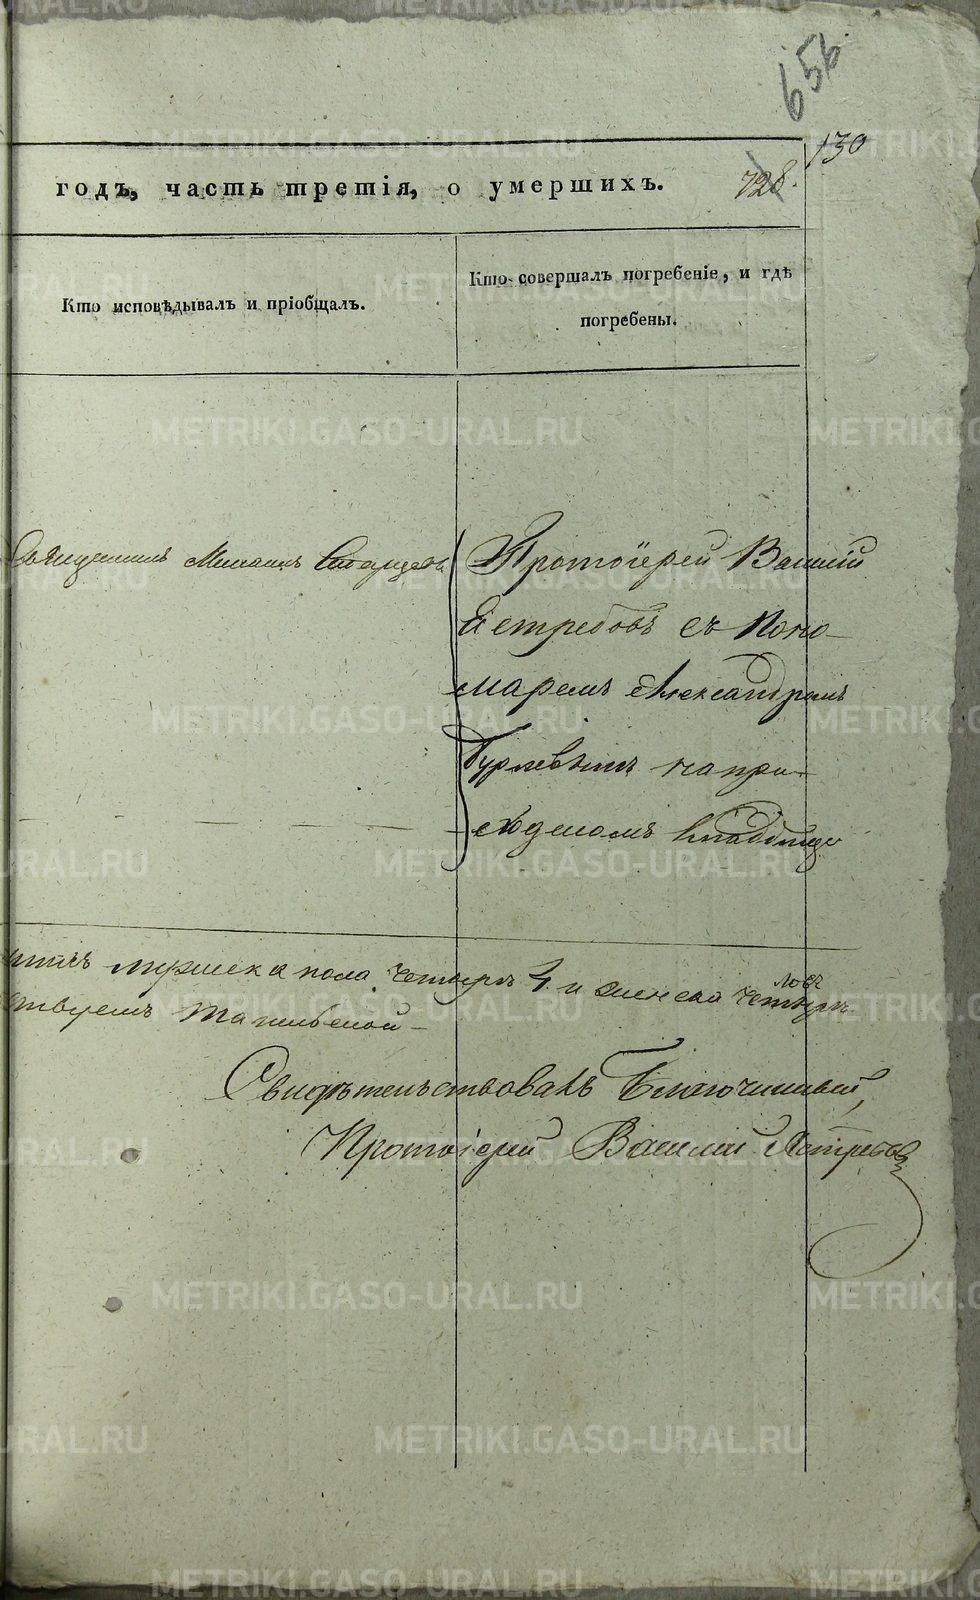 656.
130
годъ, часть третія, о умершихъ.
728.
Кто исповѣдывалъ и пріобщалъ.
Кто совершалъ погребеніе, и гдѣ
погребены.
Священникъ Михаилъ
Протоіерей Василій
Ястребовъ съ Поно-
маремъ Александромъ
на при-
ходскомъ кладбище
мужеска пола четыре 4 и женска четыре
Свидѣтельствовалъ Благочинный,
Протоіерей Василий Ястребовъ
METRIKI.GASO-URAL.RU